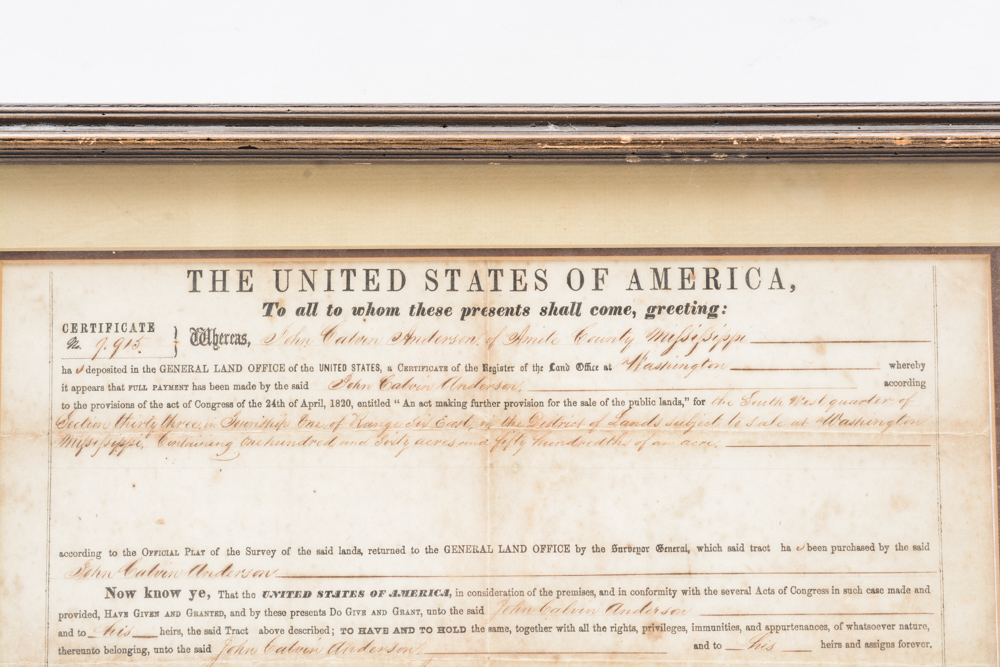 THE UNITED STATES OF AMERICA,
To all to whom these presents shall come, greeting:
CERTIFICATE
No. 9.915.
Whereas, John Calvin Anderson, of Amite County Mississippi
ha s deposited in the GENERAL LAND OFFICE of the UNITED STATES, a CERTIFICATE of the Register of the Land Office at Washington whereby
it appears that FULL PAYMENT has been made by the said John Calvin Anderson, according
to the provisions of the act of Congress of the 24th of April, 1820, entitled "An act making further provision for the sale of the public lands," for the South West quarter of
Section thirty three, in Township One of Range Six East, in the District of Lands subject to sale at Washington
Mississippi, Containing one hundred and Sixty acres and fifty hundredths of an acre.
according to the OFFICIAL PLAT of the Survey of the said lands, returned to the GENERAL LAND OFFICE by the Surveyor General, which said tract ha s been purchased by the said
John Calvin Anderson
Now know ye, That the UNITED STATES OF AMERICA, in consideration of the premises, and in conformity with the several Acts of Congress in such case made and
provided, HAVE GIVEN AND GRANTED, and by these presents DO GIVE AND GRANT, unto the said John Calvin Anderson
and to his heirs, the said Tract above described; TO HAVE AND TO HOLD the same, together with all the rights, privileges, immunities, and appurtenances, of whatsoever nature,
thereunto belonging, unto the said John Calvin Anderson and to his heirs and assigns forever.